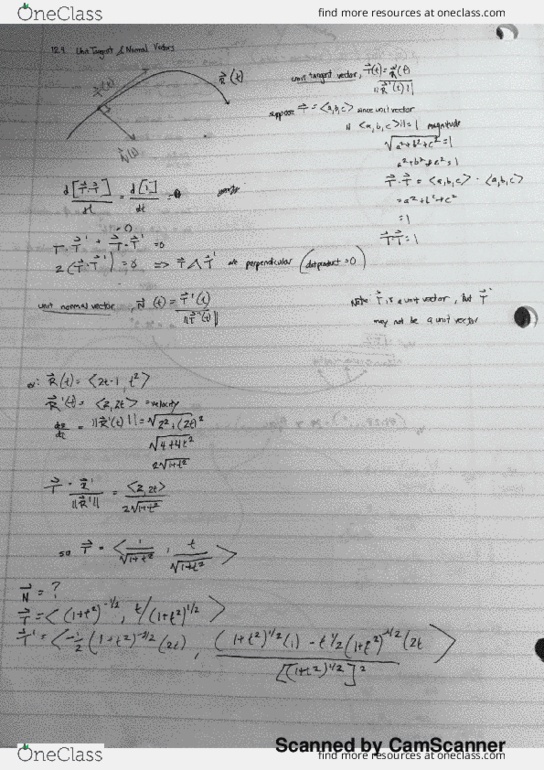 OneClass
find more resources at oneclass.com
12.4 Unit Tangent & Normal Vectors
R⃗(t)
unit tangent vector, T⃗(t) = R⃗'(t) / ||R⃗'(t)||
suppose T⃗ = <a,b,c> since unit vector
|| <a,b,c> || = 1 magnitude
√(a²+b²+c²) = 1
a²+b²+c² = 1
T⃗·T⃗ = <a,b,c> · <a,b,c>
= a²+b²+c²
= 1
T⃗·T⃗ = 1
N⃗(t)
d[T⃗·T⃗]/dt = d[1]/dt = 0
= 0
T·T⃗' + T⃗·T⃗' = 0
2(T⃗·T⃗') = 0 => T⃗ ∧ T⃗' are perpendicular (dot product = 0)
unit normal vector, N⃗(t) = T⃗'(t) / ||T⃗'(t)||
Note: T⃗ is a unit vector, but T⃗'
may not be a unit vector
ex: R⃗(t) = <2t-1, t²>
R⃗'(t) = <2,2t> = velocity
= ||R⃗'(t)|| = √(2²+(2t)²
√(4+4t²)
2√(1+t²)
T⃗ = R⃗' / ||R⃗'|| = <2,2t> / 2√(1+t²)
so T⃗ = < 1/√(1+t²) , t/√(1+t²) >
N⃗ = ?
T⃗ = < (1+t²)^-1/2 , t/(1+t²)^1/2 >
T⃗' = < -1/2 (1+t²)^-3/2 (2t) , ((1+t²)^1/2 (1) - t ½ (1+t²)^-1/2 (2t / [(1+t²)^1/2]² >
Scanned by CamScanner
OneClass
find more resources at oneclass.com